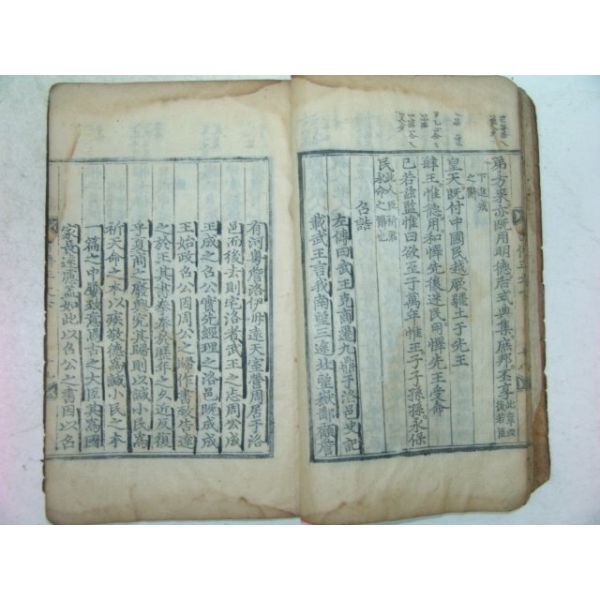 弟方來亦旣用明德后式典集庶邦丕享此章以後若臣
下進戒之辭
皇天旣付中國民越厥疆土于先王
肆王惟德用和懌先後迷民用懌先王受命
已若茲監惟曰欲至于萬年惟王子子孫孫永保
民此人臣祈君永命之辭也
召誥
左傳曰武王克商遷九鼎于洛邑史記
載武王言我南望三途北望嶽鄙顧詹
有河粤詹洛伊毋遠天室營周居于洛
邑而後去則宅洛者武王之志周公成
王成之召公實先經理之洛邑旣成成
王始政召公因周公之歸作書致告達
之於王其書拳拳於歷年之久近反復
乎夏商之廢興究其歸則以諴小民爲
祈天命之本以疾敬德爲諴小民之本
一篇之中屢致意焉古之大臣其爲國
家長遠慮蓋如此以召公之書因以召